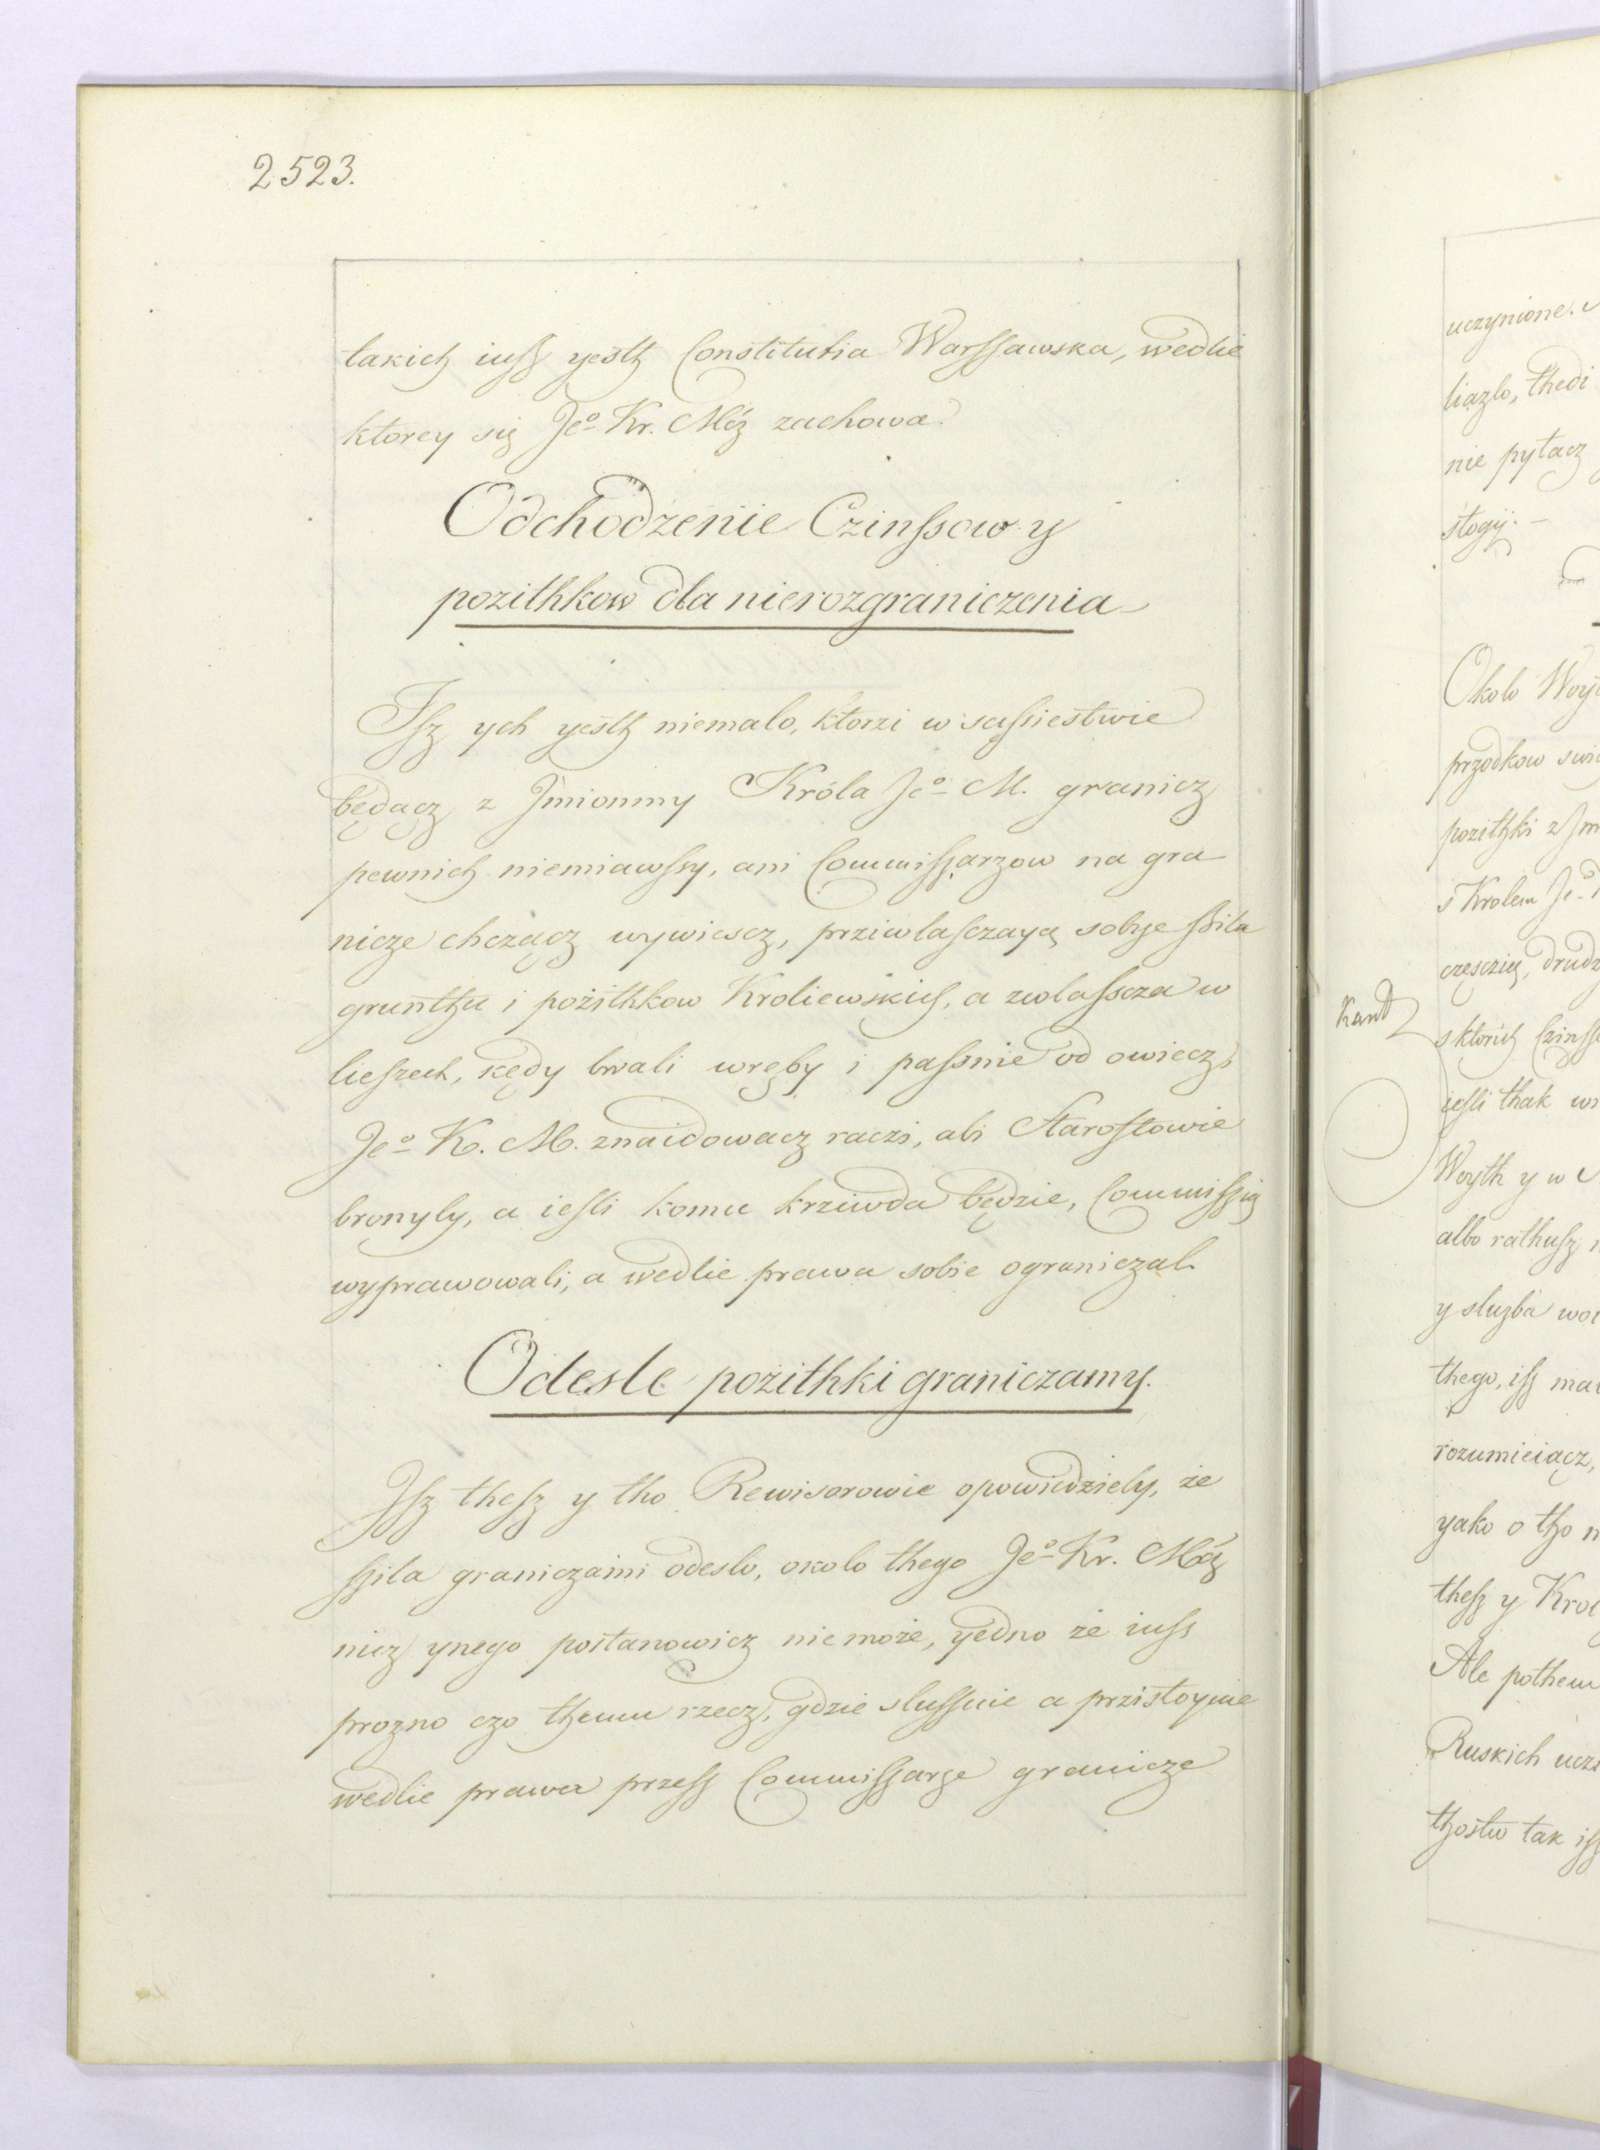 2523.
takich iussz yesth Constitutia Warssawska, wedlie
ktorey się Je⁰ Kr. Mćz zachowa.
Odchodzenie Czinssow y
pozithkow dla nierozgraniczenia
Isz ych yesth niemalo, ktorzi w sassiestwie
będącz z Jmionmy Króla Je⁰ M. granicz
pewnich niemiawssy, ani Commissarzow na gra
nicze chczącz wywiescz, prziwlasczayą sobye ssila
grunthu i pożithkow Kroliewskich, a zwlasscza w
liessech, kędy brali wręby i passnie od owiecz,
Je⁰ K. M. znaidowacz raczi, abi Starostowie
bronyly, a iesli komu krziwda będzie, Commissią
wyprawowali, a wedlie prawa sobie ograniczal.
Odesle pozithki graniczamy.
Isz thesz y tho Rewisorowie opowidziely, że
ssila graniczami odeslo, okolo thego Je⁰ Kr. Mćz
nicz ynego postanowicz niemoże, yedno że iuss
prozno czo themu rzecz, gdzie slussnie a przistoynie
wedlie prawa przessz Commissarze granicze
uczynione.
liazlo, thedi
nie pytacz
stogij. –
Okolo
przodkow
pozithki z
s Krolem Je⁰
częsczią,
Kant
s ktorich
iesli thak
Woyth y w
albo rathusz
y sluzba
thego, issz
rozumieiącz,
yako o tho
thesz y
Ale pothem
Ruskich
thostw tak